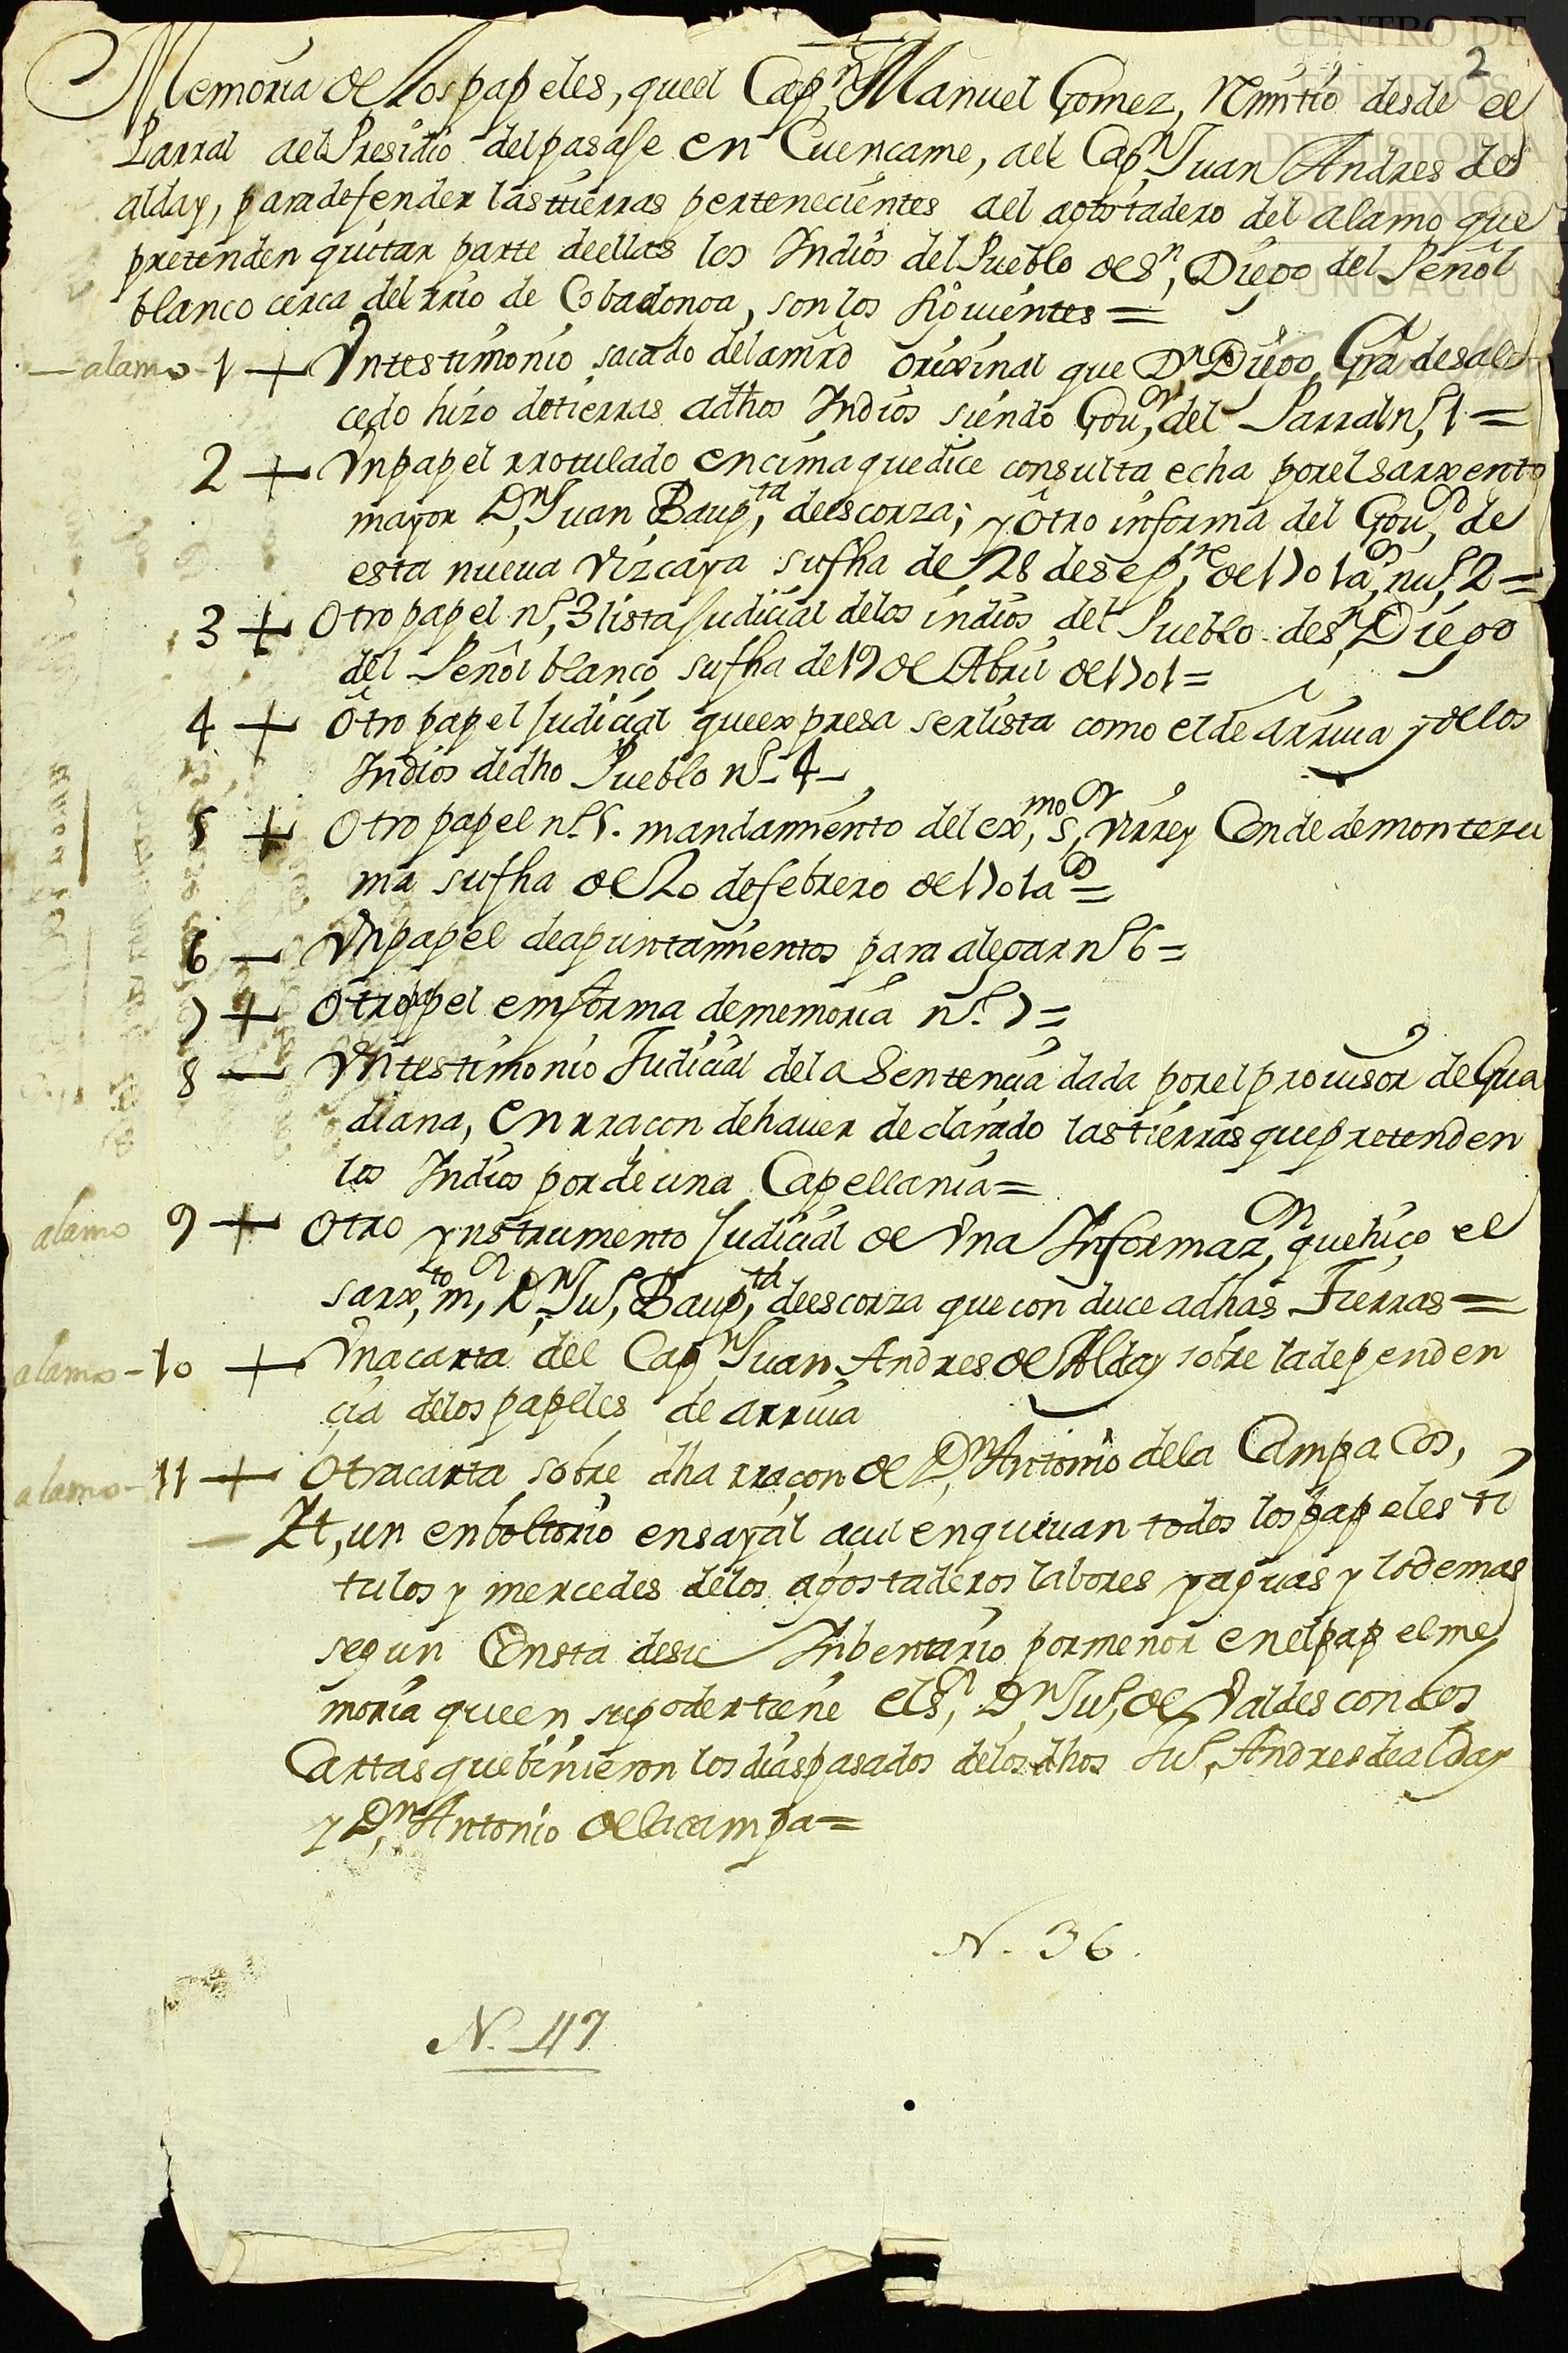 2
Memoria de los papeles, que el Capn, Manuel Gomez, rrimitio desde el
Parral ael Presidio del pasaje en Cuencame, ael Capn, Juan Andres de
alday, para defender las ttierras pertenecientes ael agostadero del alamo que
pretenden quitar parte de ellas los Indios del Pueblo de Sn, Diego del Peñol
blanco cerca del rrio de Cobadonga, son los siguientes =
alamo - 1 + Un testimonio sacado del amparo orixinal que Dn, Diego Gra de sal
cedo hizo de tierras a dhos Indios siendo Gour, del Parral no, 1 =
2 + Un papel rrotulado encima que dice consulta echa por el sarxento
mayor Dn, Juan Bapta, de escorza; y Otro informa del Gouo, de
esta nueua Vizcaya su fha de 28 de sepre, de 1701 ao, nuo, 2 =
3 + Otro papel no, 3 lista Judicial de los indios del Pueblo de Sn, Diego
del Peñol blanco su fha de 19 de Abril de 1701 =
4 + Otro papel Judicial que expresa ser lista como el de arriua y de los
Indios de dho Pueblo no - 4 -
5 + Otro papel no. 5. mandamiento del exmo, sor, Virrey Conde de montezu
ma su fha de 20 de febrero de 1701 ao =
6 - Un papel de apuntamientos para alegar no 6 =
7 + Otro papel em forma de memoria no. 7 =
8 - Un testimonio Judicial de la Sentencia dada por el prouisor de Gua
diana, en rracon de hauer declarado las tierras que pretenden
los Indios por de una Capellania =
alamo 9 + Otro ynstrumento Judicial de Una Informazn, que hiço el
sarxto, mr, Dn, Juo, Baupta, de escorza que conduce a dhas Tierras =
alamo - 10 + Una carta del Capn, Juan Andres de Alday sobre la dependen
cia de los papeles de arriua
alamo - 11 + Otra carta sobre dha rraçon de Dn, Antonio de la Campa Cos,
- It, un enboltorio en sayal açul en que iuan todos los papeles ti
tulos y mercedes de los agostaderos labores y aguas y lo demas
segun Consta de su Inbentario por menor en el papel me
moria que en su poder tiene el Sr, Dn, Juo, de Valdes con dos
Cartas que binieron los dias passados de los dhos Juo, Andres de alday
y Dn, Antonio de la campa =
N. 36.
N. 47